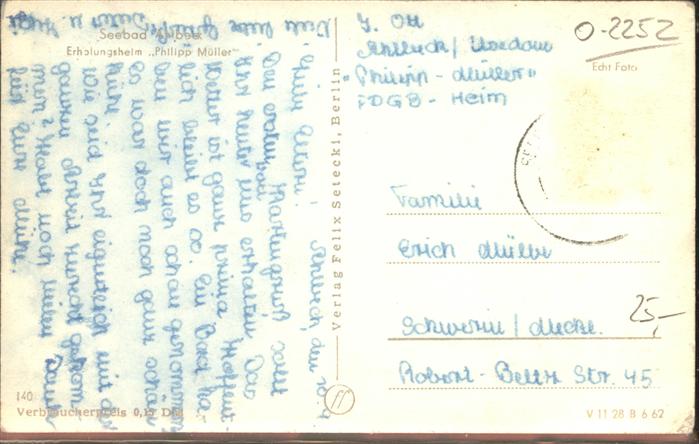 Seebad Ahlbeck
Erholungsheim „Philipp Müller"
Ahlbeck, den 10.9
Liebe Eltern!
Den ersten
Ihr heute uns erhalten. Das
Wetter ist ganz prima. Hoffent-
lich bleibt es so. Ein Bad ha-
ben wir auch schon genommen
es war doch noch ganz schön
kühl.
Wie seid Ihr eigentlich mit der
ganzen Arbeit zurecht gekom-
men? Habt noch vielen Dank
für Eure Mühe.
Viele liebe Grüße
Verlag Felix Setecki, Berlin
J. Ott
Ahlbeck / Usedom
"Philipp-Müller"
FDGB-Heim
O-2252
Echt Foto
Familie
Erich Müller
Schwerin / Meckl.
Robert-Beltz Str. 45
25,-
140
Verbraucherpreis 0,15 DM
V 11 28 B 6 62